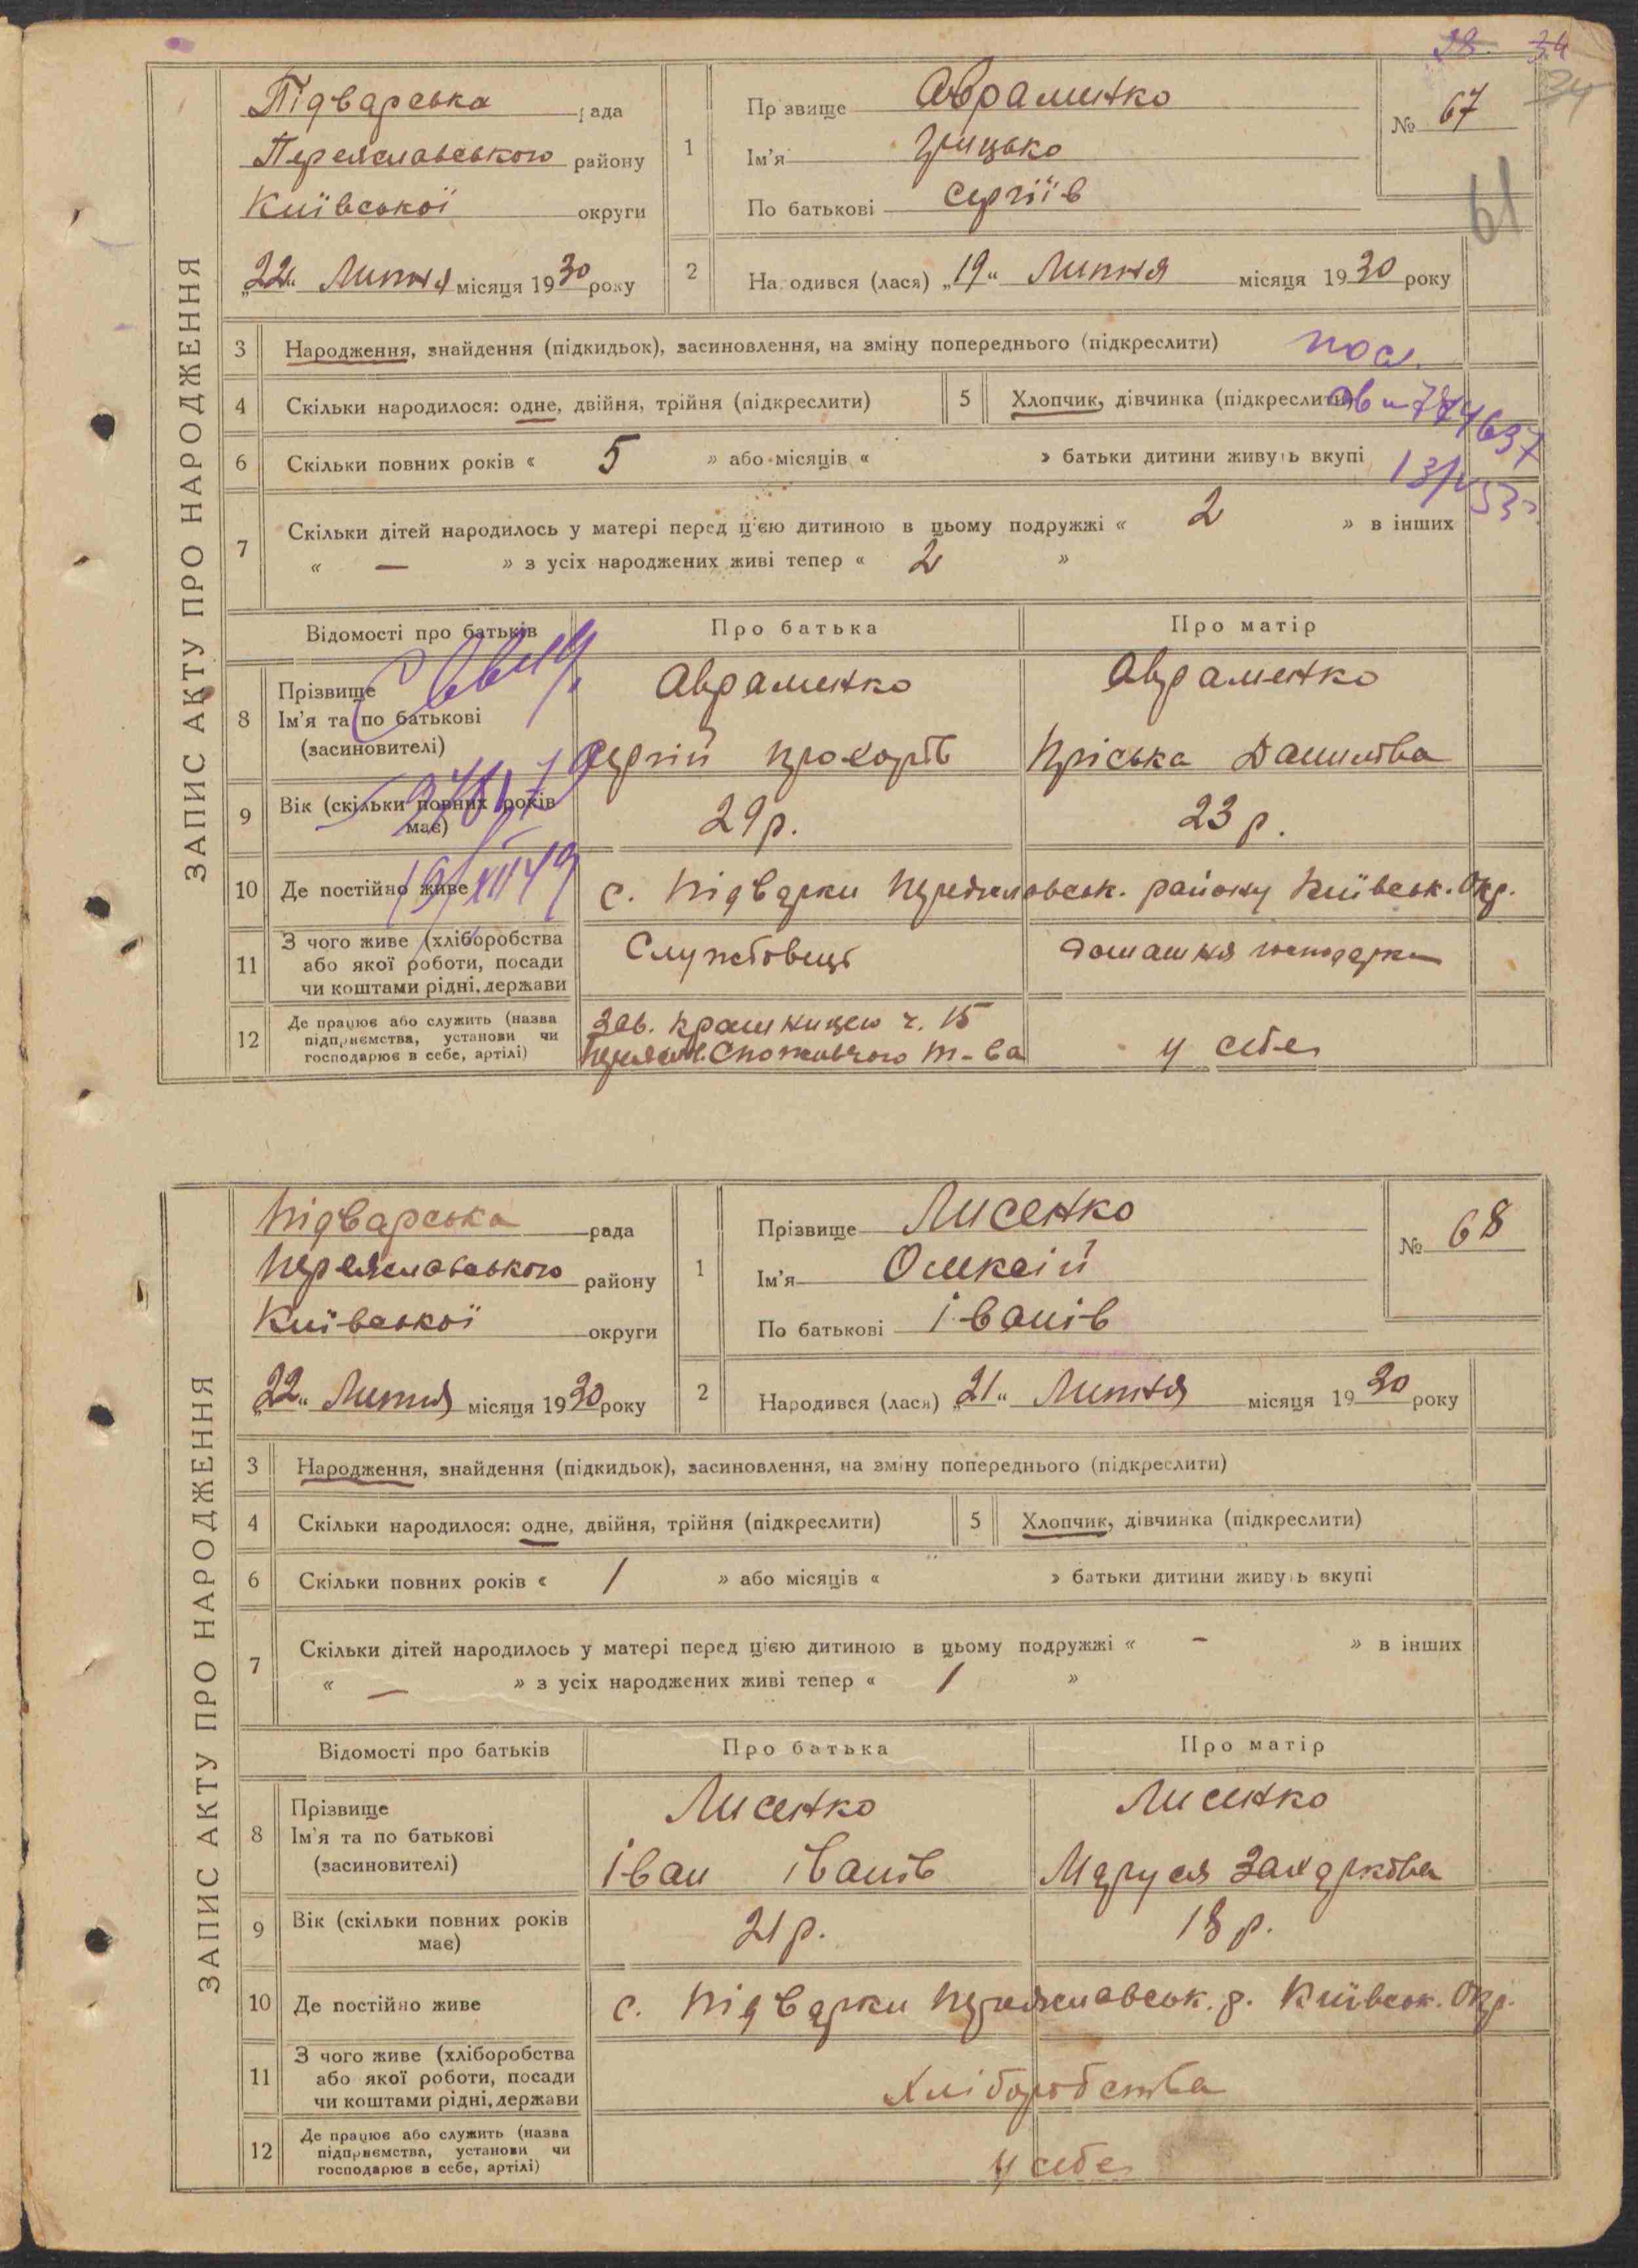 28. 34
34
ЗАПИС АКТУ ПРО НАРОДЖЕННЯ
Підварська рада
Переяславського району
Київської округи
„22“ Липня місяця 1930 року
1
Прізвище Авраменко
Ім'я Грицько
По батькові Сергіїв
№ 67
61
2
Народився (лася) „19“ Липня місяця 1930 року
3 Народження, знайдення (підкидьок), засиновлення, на зміну попереднього (підкреслити)
4 Скільки народилося: одне, двійня, трійня (підкреслити)
5 Хлопчик, дівчинка (підкреслити)
6 Скільки повних років « 5 » або місяців « » батьки дитини живуть вкупі
7 Скільки дітей народилось у матері перед цією дитиною в цьому подружжі « 2 » в інших
« — » з усіх народжених живі тепер « 2 »
Відомості про батьків Про батька Про матір
8 Прізвище
Ім'я та по батькові
(засиновителі)
Авраменко
Сергій Прохорів
Авраменко
Пріська Данилова
9 Вік (скільки повних років
має)
29 р. 23 р.
10 Де постійно живе с. Підварки Переяславськ. району Київськ. Окр.
11 З чого живе (хліборобства
або якої роботи, посади
чи коштами рідні, держави
Службовець
домашня господарка
12 Де працює або служить (назва
підприємства, установи чи
господарює в себе, артілі)
Зав. крамницею ч. 15
Переясл. Споживчого т-ва
у себе
ЗАПИС АКТУ ПРО НАРОДЖЕННЯ
Підварська рада
Переяславського району
Київської округи
„22“ Липня місяця 1930 року
1
Прізвище Лисенко
Ім'я Олексій
По батькові Іванів
№ 68
2
Народився (лася) „21“ Липня місяця 1930 року
3 Народження, знайдення (підкидьок), засиновлення, на зміну попереднього (підкреслити)
4 Скільки народилося: одне, двійня, трійня (підкреслити)
5 Хлопчик, дівчинка (підкреслити)
6 Скільки повних років « 1 » або місяців « » батьки дитини живуть вкупі
7 Скільки дітей народилось у матері перед цією дитиною в цьому подружжі « - » в інших
« — » з усіх народжених живі тепер « 1 »
Відомості про батьків Про батька Про матір
8 Прізвище
Ім'я та по батькові
(засиновителі)
Лисенко
Іван Іванів
Лисенко
Маруся Захаркова
9 Вік (скільки повних років
має)
21 р. 18 р.
10 Де постійно живе с. Підварки Переяславськ. р. Київськ. Окр.
11 З чого живе (хліборобства
або якої роботи, посади
чи коштами рідні, держави
Хліборобства
12 Де працює або служить (назва
підприємства, установи чи
господарює в себе, артілі)
у себе